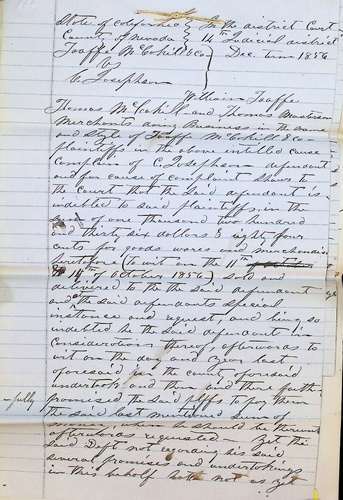 State of California } In the district Court
County of Nevada } 14th Judicial district
Taaffe McCahill & Co } Dec. term 1856
vs
C Josephson
William Taaffe
Thomas McCahill and Thomas Masterson
Merchants doing Business in the name
and Style of Taaffe McCahill & Co
plaintiffs in the above entitled cause
Complain of C. Josephson defendant
and for cause of complaint shows to
the Court that the said defendant is
indebted to said plaintiffs in the
sum of one thousand two hundred
and thirty six dollars & eight four
cents for goods wares and merchandise
heretofore (to wit on the 11th
14th of October 1856) sold and
delivered to the the said defendant
and at the said defendants special
instance and request, and being so
indebted he the said defendant in
Consideration thereof afterwards to
wit on the day and year last
aforesaid in the county aforesaid
undertook and then and there faith-
-fully promised the said plffs to pay them
the said last mentioned sum of
money, when he should be thereunto
afterwards requested - Yet the
said Deft not regarding his said
several promises and undertakings
in this behalf hath not as yet